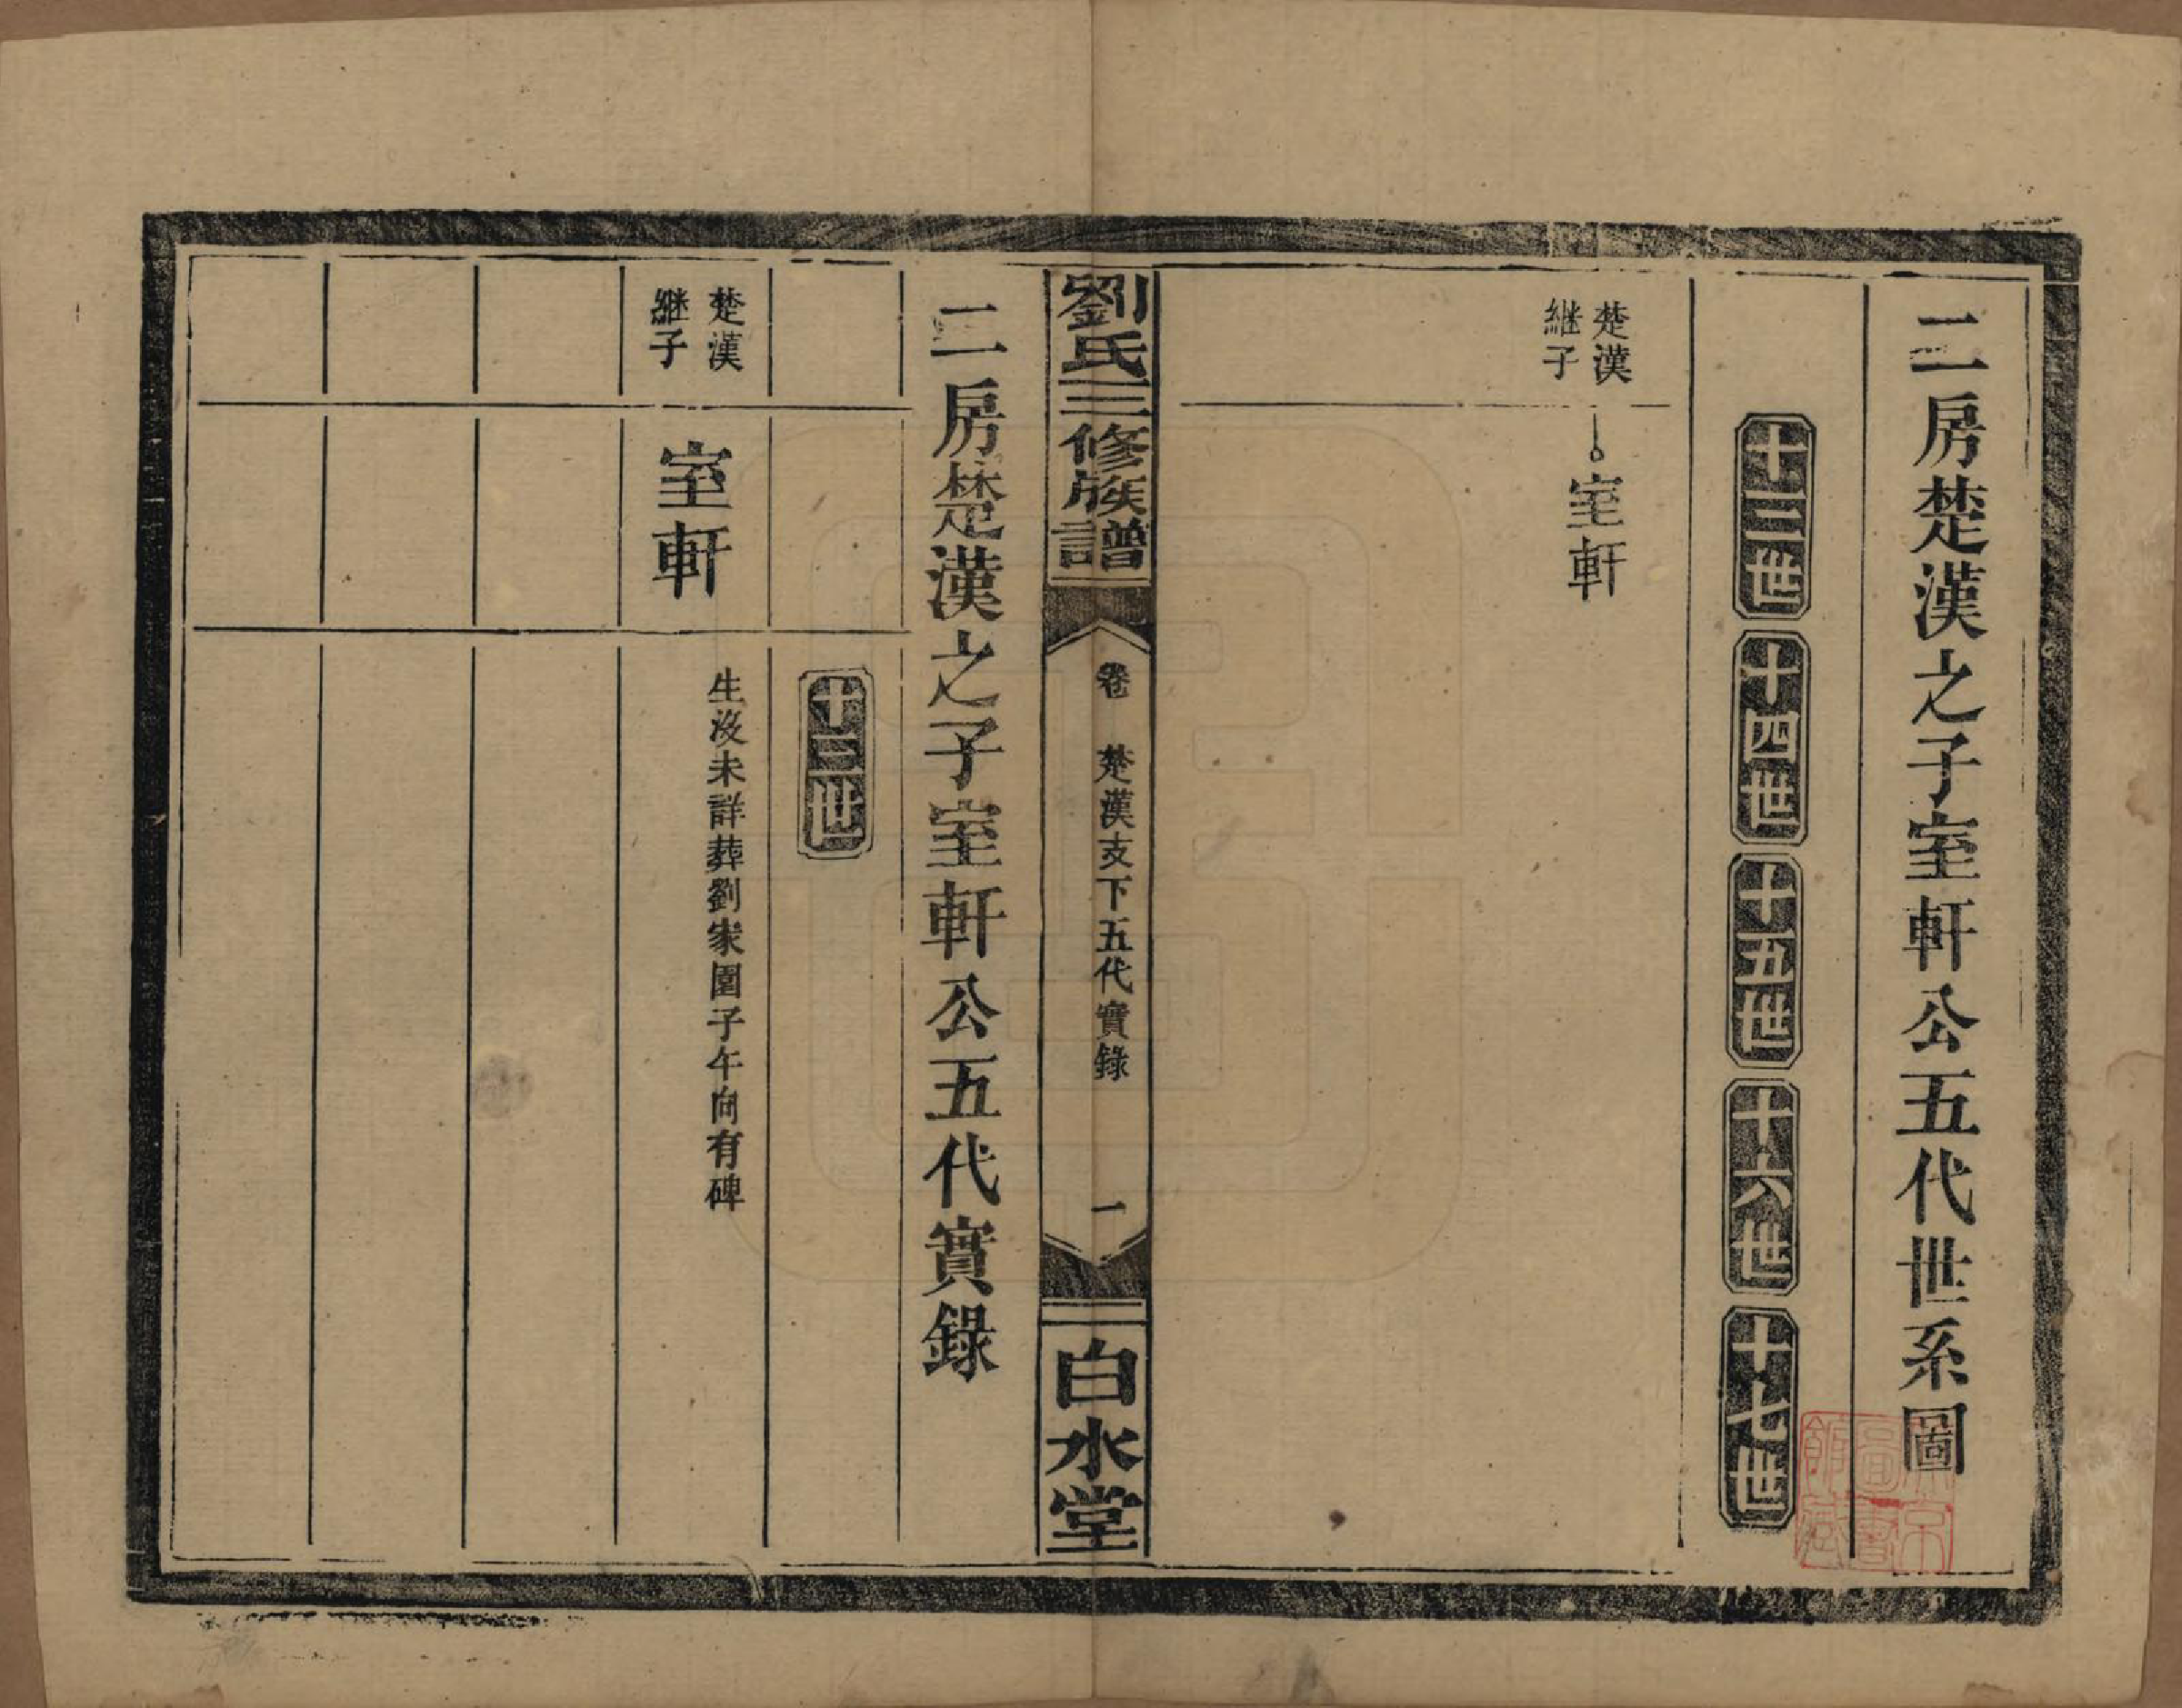 二房楚漢之子室軒公五代世系圖
十三世
十四世
十五世
十六世
十七世
楚漢
継子
室軒
劉氏三修族譜
卷
楚漢支下五代實錄
一
白水堂
二房楚漢之子室軒公五代實錄
十三世
楚漢
継子
室軒
生沒未詳葬劉家園子午向有碑